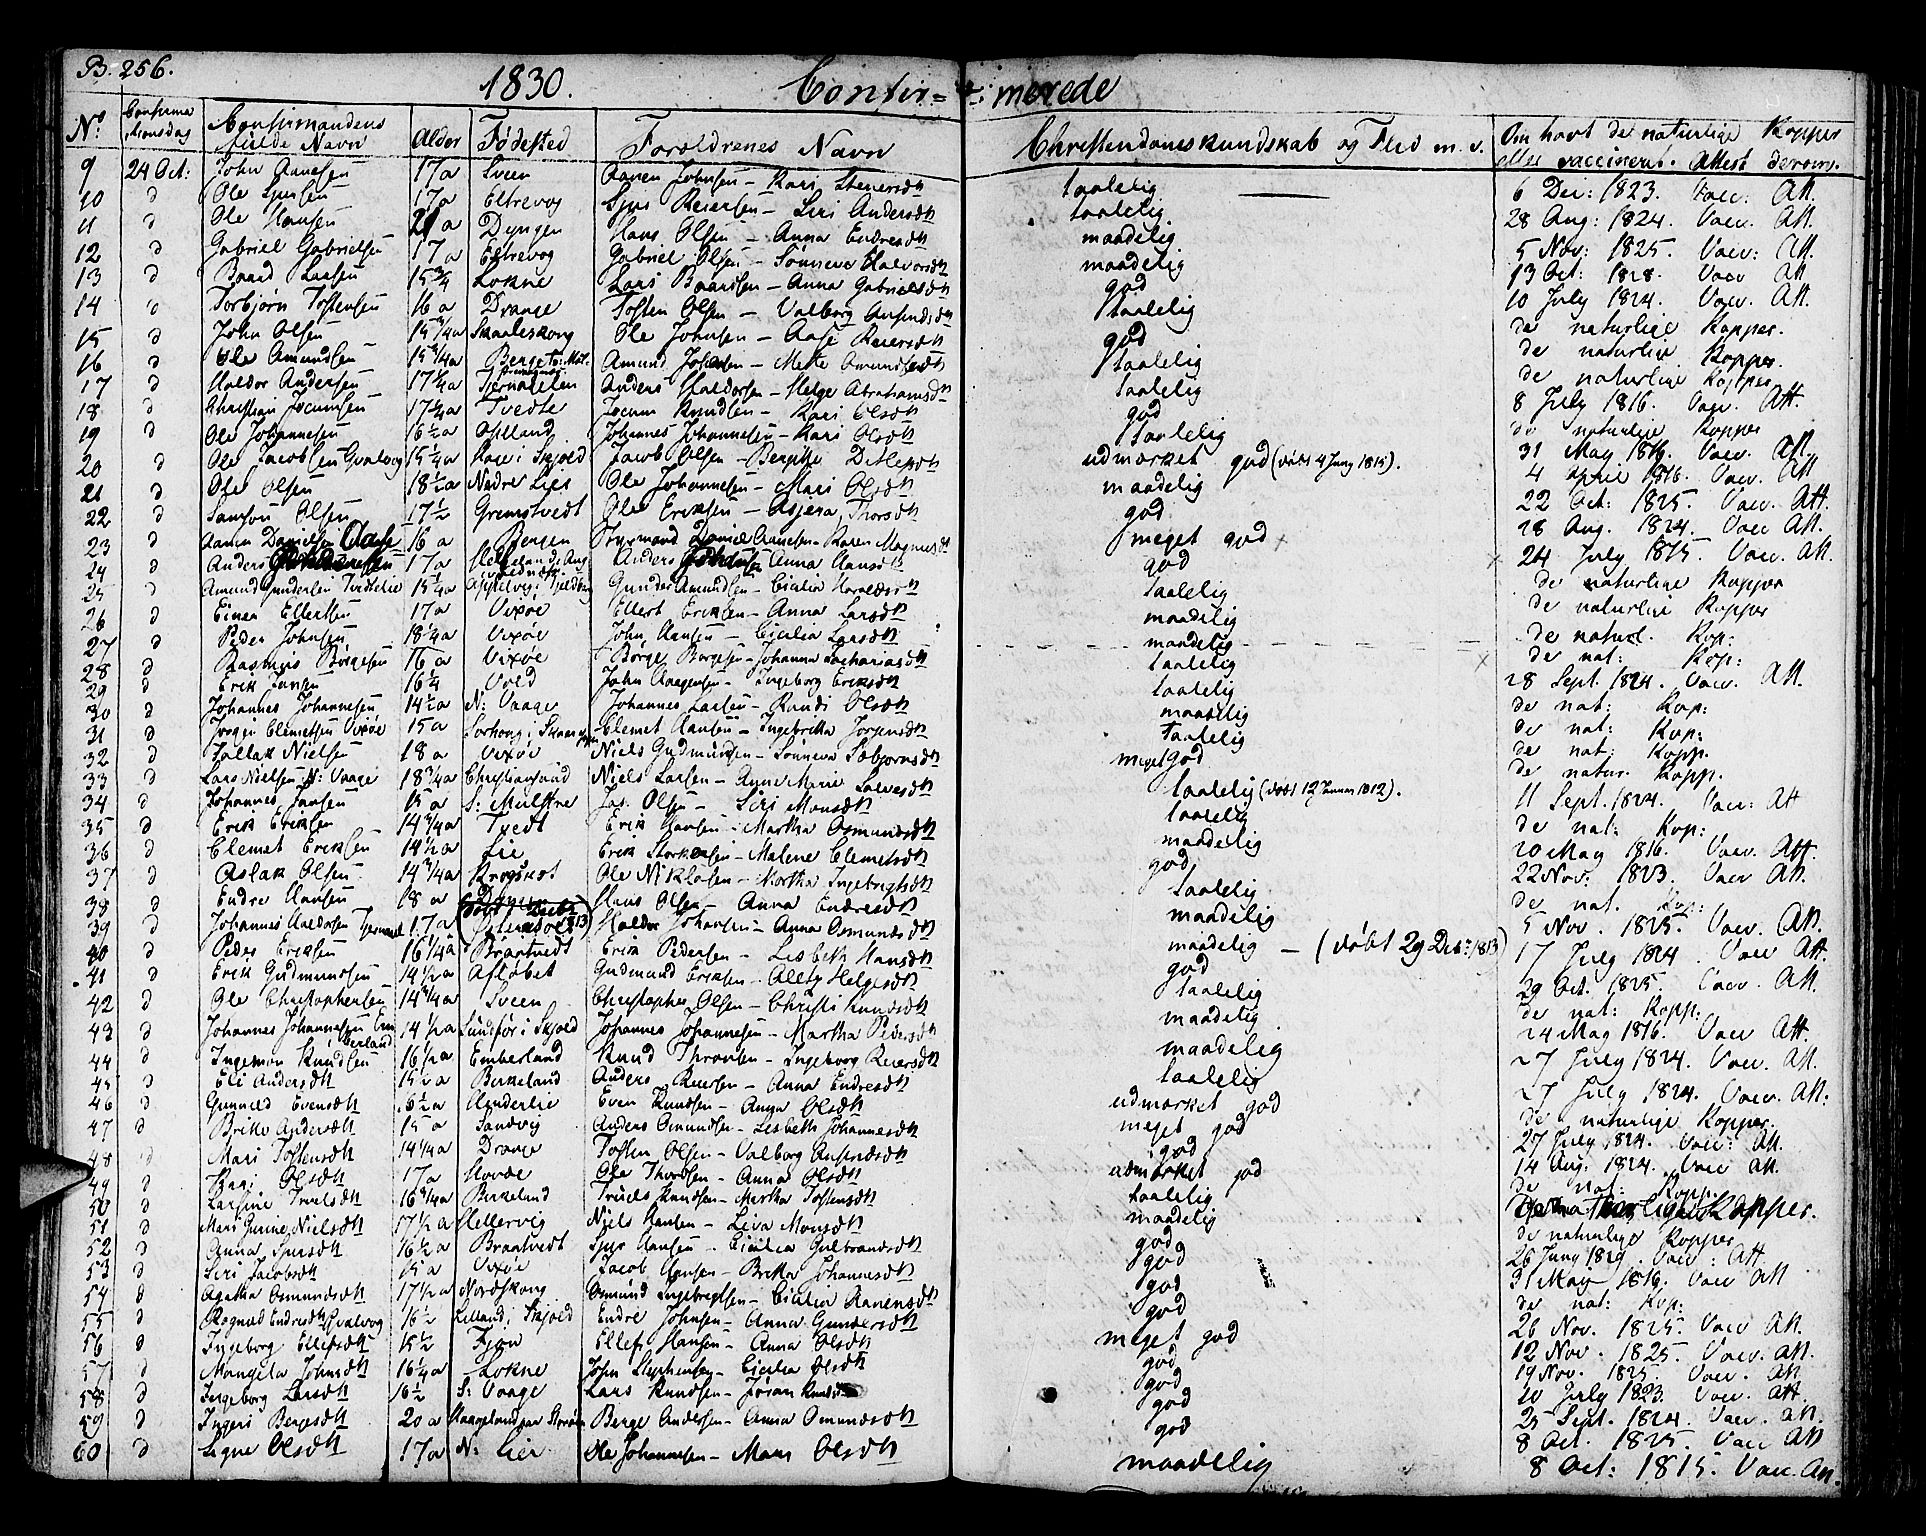 B. 256.
1830. Confir= merede
No. Confirma tionsdag Confirmandens fulde Navn Alder Fødested Forældrenes Navn Christendomskundskab og Flid m. v. Om havt de naturlige Kopper eller vaccineret. Attest derom.
9 24 Oct: John Aanesen 17 a Sveen Aanen Johnsen - Kari Stenersdtr taalelig 6 Dec: 1823. Vacc: Att.
10 d Ole Sjursen 17 a Eltrevog Sjur Reiersen - Siri Andersdtr taalelig 28 Aug: 1824. Vacc. Att.
11 d Ole Hansen 21 a Dyngen Hans Olsen - Anna Endresdtr maadelig 5 Nov: 1825. Vacc: Att.
12 d Gabriel Gabrielsen 17 a Eltrevog Gabriel Olsen - Sønneva Halvorsdtr maadelig 13 Oct: 1828. Vacc Att
13 d Baard Larsen 15 3/4 Lokne Lars Baardsen - Anna Gabrielsdtr god 10 July 1824. Vacc. Att.
14 d Torbjørn Tostensen 16 a Drange Tosten Olsen - Valborg taalelig de naturlige Kopper.
15 d John Olsen 15 3/4 a Skaaleskong Ole Johnsen - Aase Reiersdtr god de naturlige Kopper.
16 d Ole Amundsen 15 3/4 a Berge Amund Johnsen - Mette Amundsdtr taalelig de naturlige Kopper
17 d Haldor Andersen 17 1/4 a Anders Haldorsen - Helge Abrahamsdtr taalelig 8 July 1816. Vacc. Att.
18 d Christian Jocumsen 17 1/4 a Tvedte Jocum Knudsen - Kari Olsdtr god de naturlige Kopper
19 d Ole Johannesen 16 1/2 a Ølland Johannes Johannesen - Kari Olsdtr taalelig 31 May 1816. Vacc. Att.
20 d Ole Jacobsen Qvalvog 15 1/4 a i Skjold Jacob Olsen - Bergitte udmærket god (døbt 4 Juny 1815). 4 April 1816. Vacc. Att
21 d Ole Olsen 18 1/2 a Nedre Lies Ole Johannesen - Mari Olsdtr maadelig 22 Oct: 1825. Vacc. Att.
22 d Samson Olsen 17 1/2 Gremstvedt Ole Eriksen - Asjera Thorsdtr god 28 Aug. 1824. Vacc Att.
23 d Aanen Danielsen 16 a Bergen Styrmand Daniel Aanesen - Karen Magnusdtr meget god 24 July 1815. Vacc. Att.
24 d Anders 17 a Anders Anna Hansdtr god de naturlige Kopper
25 d Amund Gundersen 15 1/4 a Gunder Amundsen - Cicilia Haraldsdtr taalelig de naturlige Kopper
26 d Einer Ellertsen 17 a Vixøe Ellert Eriksen - Anna Larsdtr maadelig de naturl. Kop:
27 d Peder Johnsen 18 1/4 a Vixøe John Hansen - Cicilia Larsdtr maadelig de nat: Kop:
28 d Rasmus Børgesen 16 a Vixøe Børge Børgesen - Johanna Zachariasdtr taalelig 28 Sept. 1824. Vacc. Att.
29 d Erik Jansen 16 1/4 Vold John Aagensen - Ingeborg Eriksdtr taalelig de nat: Kop:
30 d Johannes Johannesen 14 1/2 a N: Vaage Johannes Larsen - Randi Olsdtr maadelig de nat: Kop:
31 d Jørgen Clemetsen Vixøe 15 a Clemet Hansen - Ingebrikta Jørgensdtr taalelig de nat: Kopp.
32 d Tallak Nielsen 18 a Vixøe Niels Gudmundsen - Sønneva Tobjørnsdtr meget god de natur. Kopp.
33 d Lars Nielsen N: Vaage 18 3/4 a Christiansand Niels Larsen - Anne Marie Larsdtr taalelig (døbt 12 Januar 1812). 11 Sept. 1824. Vacc: Att
34 d Johannes Jansen 15 a S: Mulstre Olsen - Siri Monsdtr taalelig de nat: Kop:
35 d Erik Eriksen 14 3/4 a Tvedt Erik Hansen - Martha Osmundsdtr maadelig 20 May 1816. Vacc. Att.
36 d Clemet Eriksen 14 1/2 a Lie Erik Storkersen - Malene Clemetsdtr god 22 Nov: 1823. Vacc Att.
37 d Aslak Olsen 14 3/4 a Krogskot Ole Niklasen - Martha Ingebrigtsdtr taalelig de nat. Kop:
38 d Endre Hansen 18 a Hans Olsen - Anna Endresdtr maadelig 5 Nov. 1825. Vacc. Att.
39 d Johannes Haldorsen 17 a Haldor Johansen - Anna Osmundsdtr maadelig - (døbt 29 Decbr: 1813) 17 July 1824. Vacc Att.
40 d Peder Eriksen 16 1/4 a Braatvedt Erik Pedersen - Lisbeth Hansdtr god 29 Oct. 1825. Vacc. Att.
41 d Erik Gudmundsen 14 1/2 a Asløbet Gudmund Eriksen - Helgesdtr taalelig de nat: Kopp.
42 d Ole Christophersen 14 3/4 a Sveen Christopher Olsen - Christi Knudsdtr maadelig 24 May 1816. Vacc Att.
43 d Johannes Johannesen Emberland 14 1/2 a Lundsør i Skjold Johannes Johannesen - Martha Pedersdtr maadelig 27 July 1824. Vacc. Att.
44 d Ingemon Knudsen 16 1/2 a Emberland Knud Thronsen - Ingeborg Reiersdtr taalelig 27 July 1824. Vacc. Att:
45 d Eli Andersdtr 15 1/2 a Birkeland Anders Reiersen - Anna Endresdtr udmærket god de naturlige Kopper.
46 d Gunnild Evensdtr 16 1/2 a Anderlie Even Knudsen - Anna Olsdtr meget god 27 July 1824. Vacc: Att.
47 d Brikte Andersdtr 15 a Sandvig Anders Osmundsen - Lisbeth Johannesdtr god 14 Aug. 1824. Vacc Att.
48 d Mari Tostensdtr 14 1/4 a Drange Tosten Olsen - Valborg udmærket god de nat: Kopp.
49 d Kari Olsdtr 17 a Hovde Ole Thordsen - Anna Olsdtr taalelig De naturlige Kopper.
50 d Larsine Truelsdtr 16 3/4 a Birkeland Truels Knudsen - Martha Tostensdtr maadelig de naturlige Kopper
51 d Mari Gunne Nielsdtr 17 1/2 a Hellervig Niels Hansen - Liva Monsdtr god 26 Juny 1829. Vacc: Att
52 d Anna Sjursdtr 16 1/2 a Braatvedt Sjur Hansen - Cicilia Gulbrandsdtr god 31 May 1816. Vacc Att
53 d Siri Jacobsdtr 15 a Vixøe Jacob Hansen - Brikta Johannesdtr god de nat: Kop:
54 d Agatha Osmundsdtr 17 1/2 a Nordskong Osmund Ingebrigtsen - Cicilia Aanensdtr god 26 Nov. 1825. Vacc Att.
55 d Rognild Endresdtr Qvalvog 16 1/2 Lilland i Skjold Endre Johnsen - Anna Gundersdtr meget god 12 Nov. 1825. Vacc. Att.
56 d Ingeborg Ellefsdtr 15 1/2 Fjon Ellef Hansen - Anna Olsdtr god 19 Nov. 1825. Vacc. Att.
57 d Mangela Johnsdtr 16 1/4 a Lokne John Stephensen - Cicilia Olsdtr god 10 July 1823. Vacc. Att.
58 d Ingeborg Larsdtr 16 1/2 S: Vaage Lars Knudsen - Jøran Knudsdtr god 25 Sept. 1824. Vacc. Att.
59 d Ingeri Bergesdtr 20 a Berge Andersen - Anna Osmundsdtr god 8 Oct. 1825. Vacc Att
60 d Signe Olsdtr 17 a N: Lier Ole Johannesen - Mari Olsdtr maadelig 8 Oct: 1815. Vacc. Att.